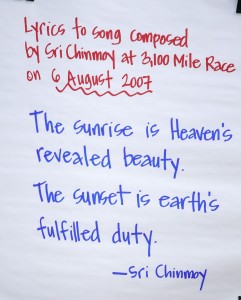 Lyrics to song composed
by Sri Chinmoy at 3,100 Mile Race
on 6 August 2007
The sunrise is Heaven's
revealed beauty.
The sunset is earth's
fulfilled duty.
—Sri Chinmoy